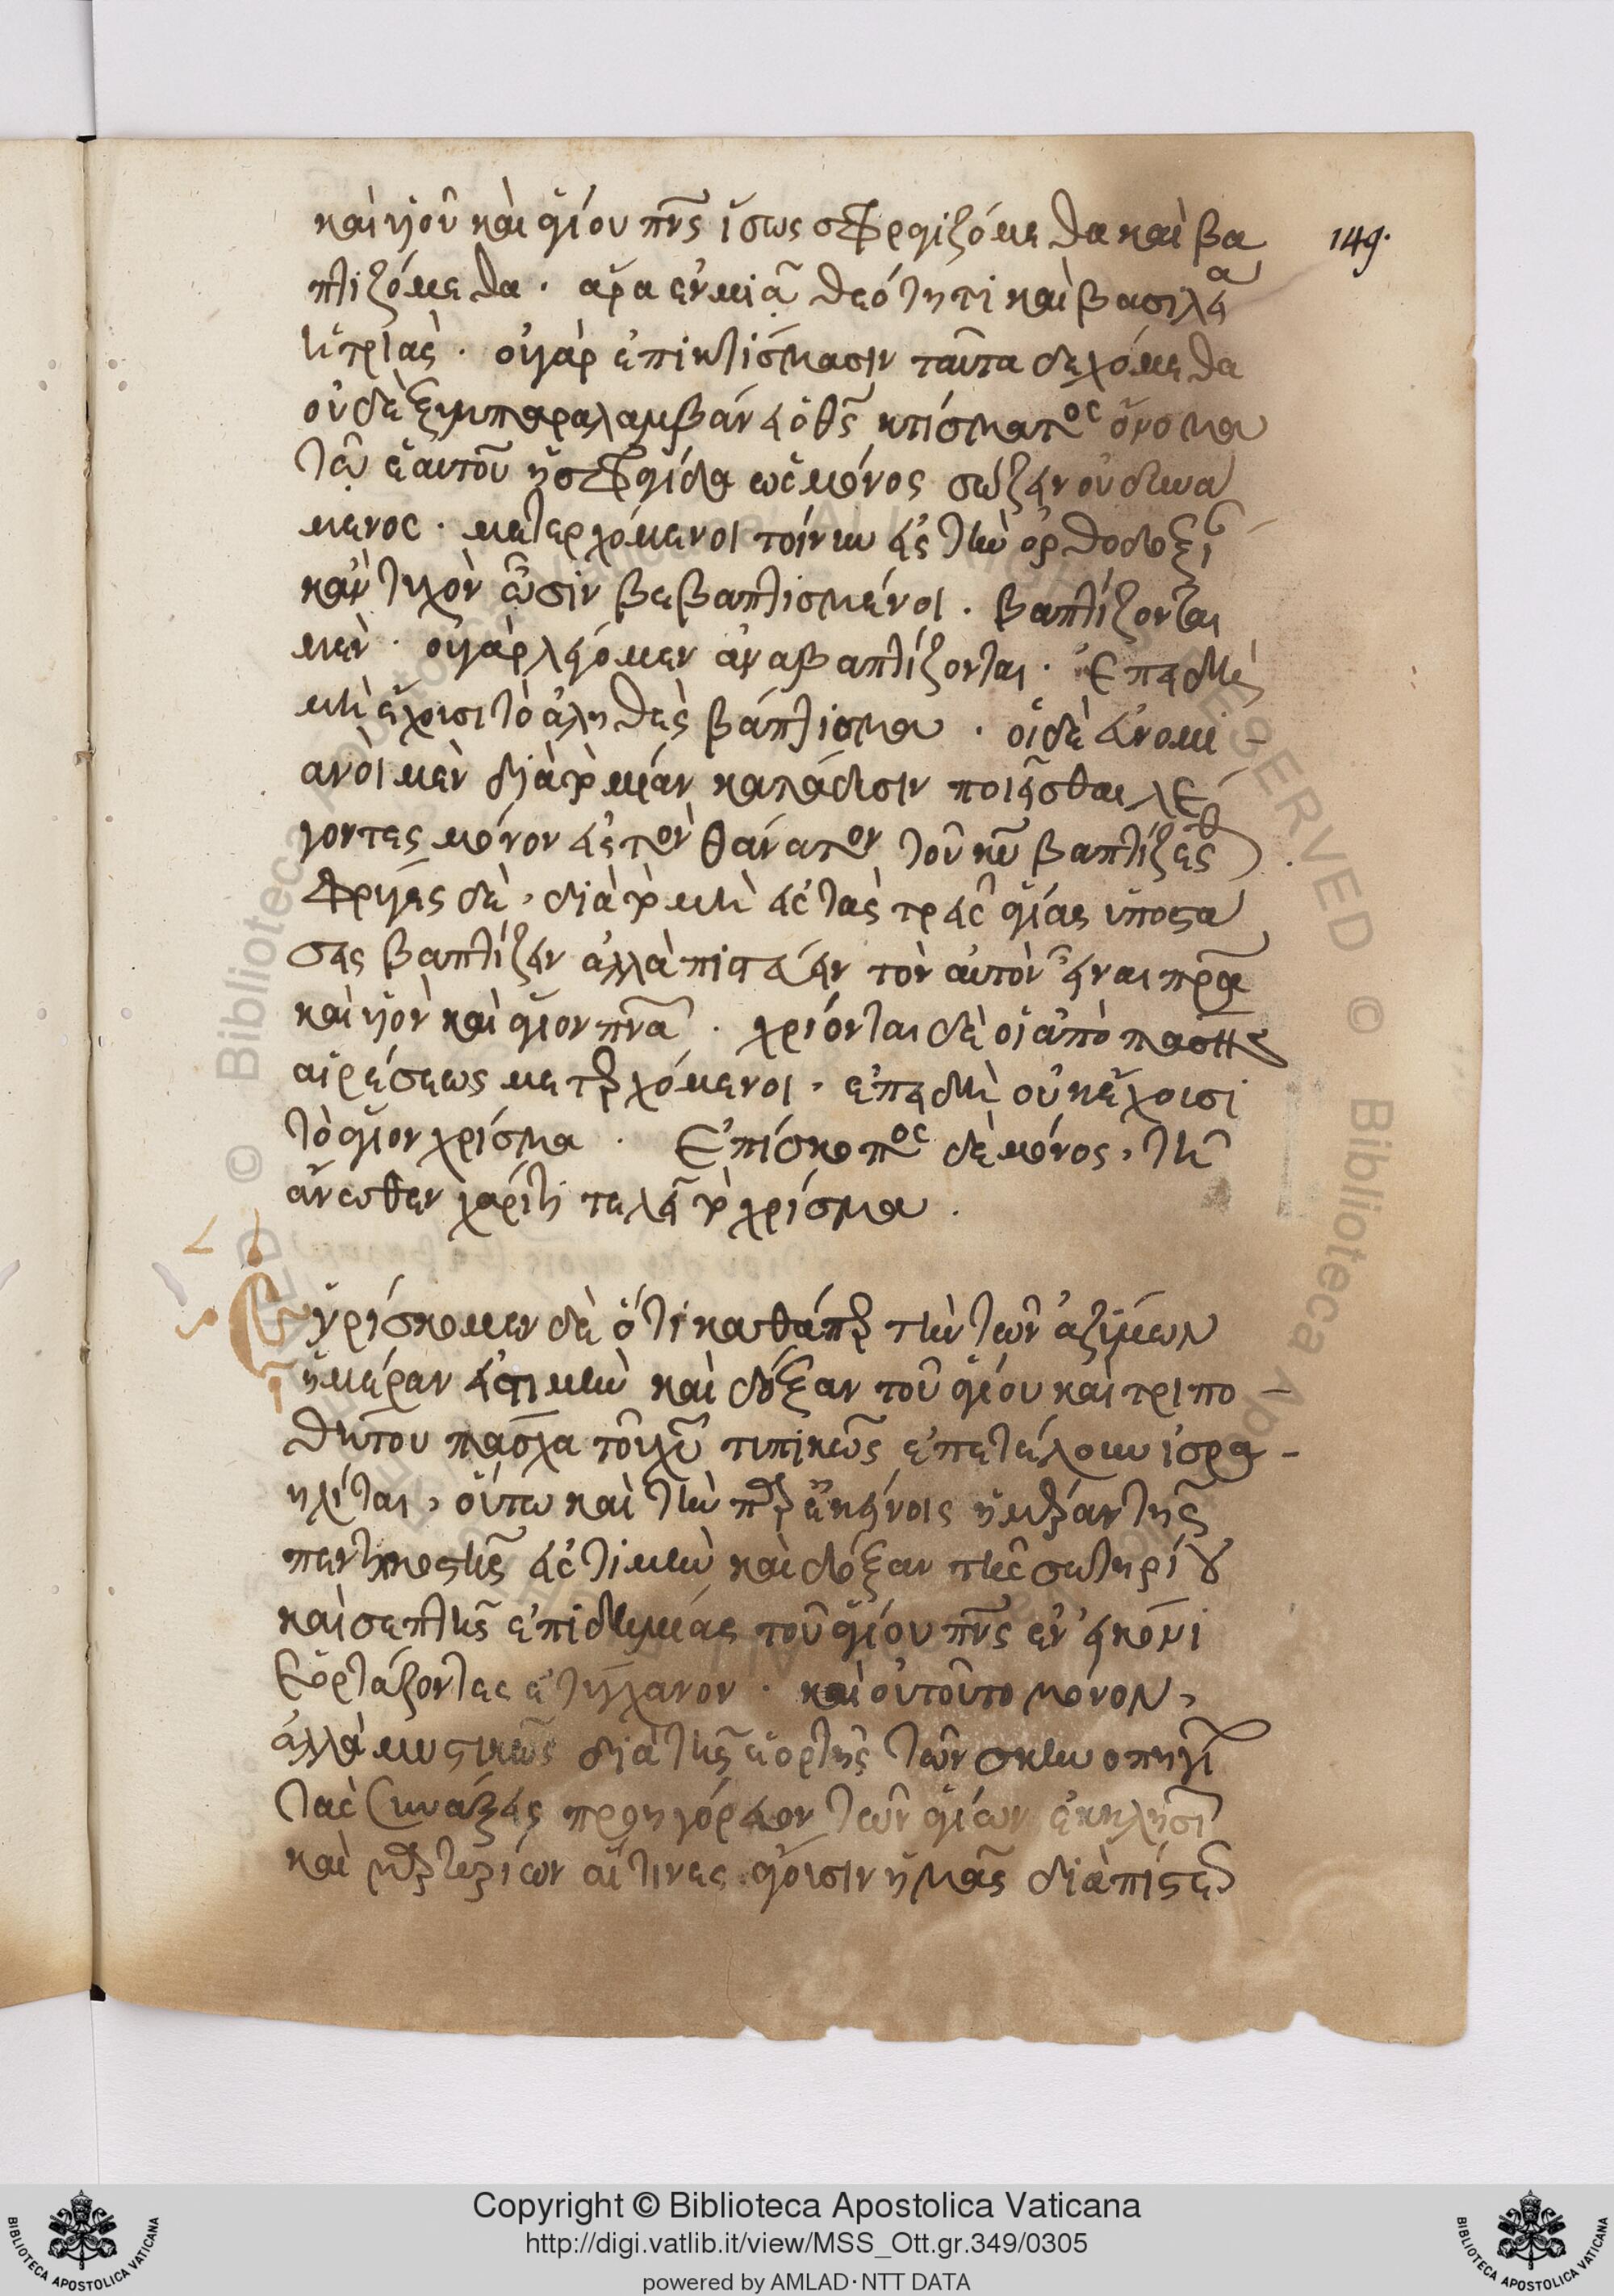 καὶ υἱοῦ καὶ ἁγίου πνς ἴσως σφραγιζόμεθα καὶ βα
πτιζόμεθα · ἄρα ἐν μιᾷ θεότητι καὶ βασιλεία
ἡ τριάς · οὐ γὰρ ἐπὶ κτίσμασιν ταῦτα δεχόμεθα
οὐδὲ ξυμπαραλαμβάνει ὁ θς κτίσματος ὄνομα
τῷ ἑαυτοῦ ἢ σφραγίδα ὡς μόνος σώζειν οὐ δυνά
μενος · μετερχόμενοι τοίνυν εἰς τὴν ὀρθοδοξί
κἂν τυχὸν ὦσιν βεβαπτισμένοι · βαπτίζονται
μὲν · οὐ γὰρ λέγομεν ἀναβαπτίζονται · ἐπειδὴ
μὴ ἔχουσι τὸ ἀληθὲς βάπτισμα · οἱ δὲ εὐνομι -
ανοὶ μὲν διὰ τὸ μίαν κατάδυσιν ποιεῖσθαι λέ
γοντες μόνον εἰς τὸν θάνατον τοῦ κυ βαπτίζεσθ .
Φρύγες δὲ, διὰ τὸ μὴ εἰς τὰς τρεῖς ἁγίας ὑποστά
σεις βαπτίζειν ἀλλὰ πιστεύειν τὸν αὐτὸν εἶναι πρα
καὶ υἱὸν καὶ ἅγιον πνα · χρίονται δὲ οἱ ἀπὸ πάσης
αἱρέσεως μετερχόμενοι, ἐπειδὴ οὐκ ἔχουσι
τὸ ἅγιον χρίσμα · Ἐπίσκοπος δὲ μόνος, τῇ
ἄνωθεν χάριτι τελεῖ τὸ χρίσμα .
Εὑρίσκομεν δὲ ὅτι καθάπερ τὴν τῶν ἀζύμων
ἡμέραν εἰς τιμὴν καὶ δόξαν τοῦ ἁγίου καὶ τριπο -
θήτου πάσχα τοῦ χυ τυπικῶς ἐπετέλουν ἰσρα -
ηλῖται, οὕτω καὶ τὴν παρ' ἐκείνοις ἡμέραν τῆς
πεντηκοστῆς εἰς τιμὴν καὶ δόξαν τῆς σωτηρίου
καὶ σεπτῆς ἐπιδημίας τοῦ ἁγίου πνς ἐν εἰκόνι
ἑορτάζοντες ἐτύγχανον · καὶ οὐ τοῦτο μόνον,
ἀλλὰ μυστικῶς διὰ τῆς ἑορτῆς τῶν σκηνοπηγι
τὰς συνάξεις προηγόρευον τῶν ἁγίων ἐκκλησι
καὶ μαρτυρίων αἵτινες ἄγουσιν ἡμᾶς διὰ πίστεως
149.
Copyright © Biblioteca Apostolica Vaticana
http://digi.vatlib.it/view/MSS_Ott.gr.349/0305
powered by AMLAD·NTT DATA
BIBLIOTECA APOSTOLICA VATICANA
BIBLIOTECA APOSTOLICA VATICANA